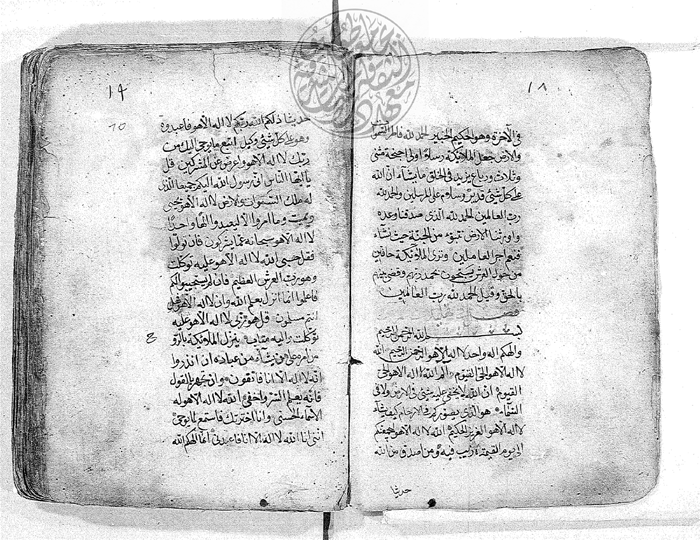 ١٨
في الآخرة وهو الحكيم الخبير الحمد لله فاطر السموات
والارض جاعل الملائكة رسلا اولى اجنحة مثنى
وثلاث ورباع يزيد في الخلق ما يشاء ان الله
على كل شئ قدير وسلام على المرسلين والحمد لله
رب العالمين الحمد لله الذى صدقنا وعده
واورثنا الارض نتبوء من الجنة حيث نشاء
فنعم اجر العاملين وترى الملائكة حافين
من حول العرش يسبحون بحمد ربهم وقضى بينهم
بالحق وقيل الحمد لله رب العالمين
بسم الله الرحمن الرحيم
والهكم اله واحد لا اله الا هو الرحمن الرحيم الله
لا اله الا هو الحي القيوم الم الله لا اله الا هو الحي
القيوم ان الله لا يخفى عليه شئ في الارض ولا في
السماء هو الذى يصوركم في الارحام كيف يشاء
لا اله الا هو العزيز الحكيم الله لا اله الا هو ليجمعنكم
الى يوم القيمة لا ريب فيه ومن اصدق من الله
حديثا
١٩
حديثا ذلكم الله ربكم لا اله الا هو فاعبدوه
وهو على كل شئ وكيل اتبع ما اوحى اليك من
ربك لا اله الا هو واعرض عن المشركين قل
يا ايها الناس انى رسول الله اليكم جميعا الذى
له ملك السموات والارض لا اله الا هو يحيى
ويميت وما امروا الا ليعبدوا الها واحدا
لا اله الا هو سبحانه عما يشركون فان تولوا
فقل حسبى الله لا اله الا هو عليه توكلت
وهو رب العرش العظيم فان لم يستجيبوا لكم
فاعلموا انما انزل بعلم الله وان لا اله الا هو فهل
انتم مسلمون قل هو ربى لا اله الا هو عليه
توكلت واليه متاب ينزل الملائكة بالروح
من امره على من يشاء من عباده ان انذروا
انه لا اله الا انا فاتقون وان تجهر بالقول
فانه يعلم السر واخفى الله لا اله الا هو له
الاسماء الحسنى وانا اخترتك فاستمع لما يوحى
اننى انا الله لا اله الا انا فاعبدنى انما الهكم الله